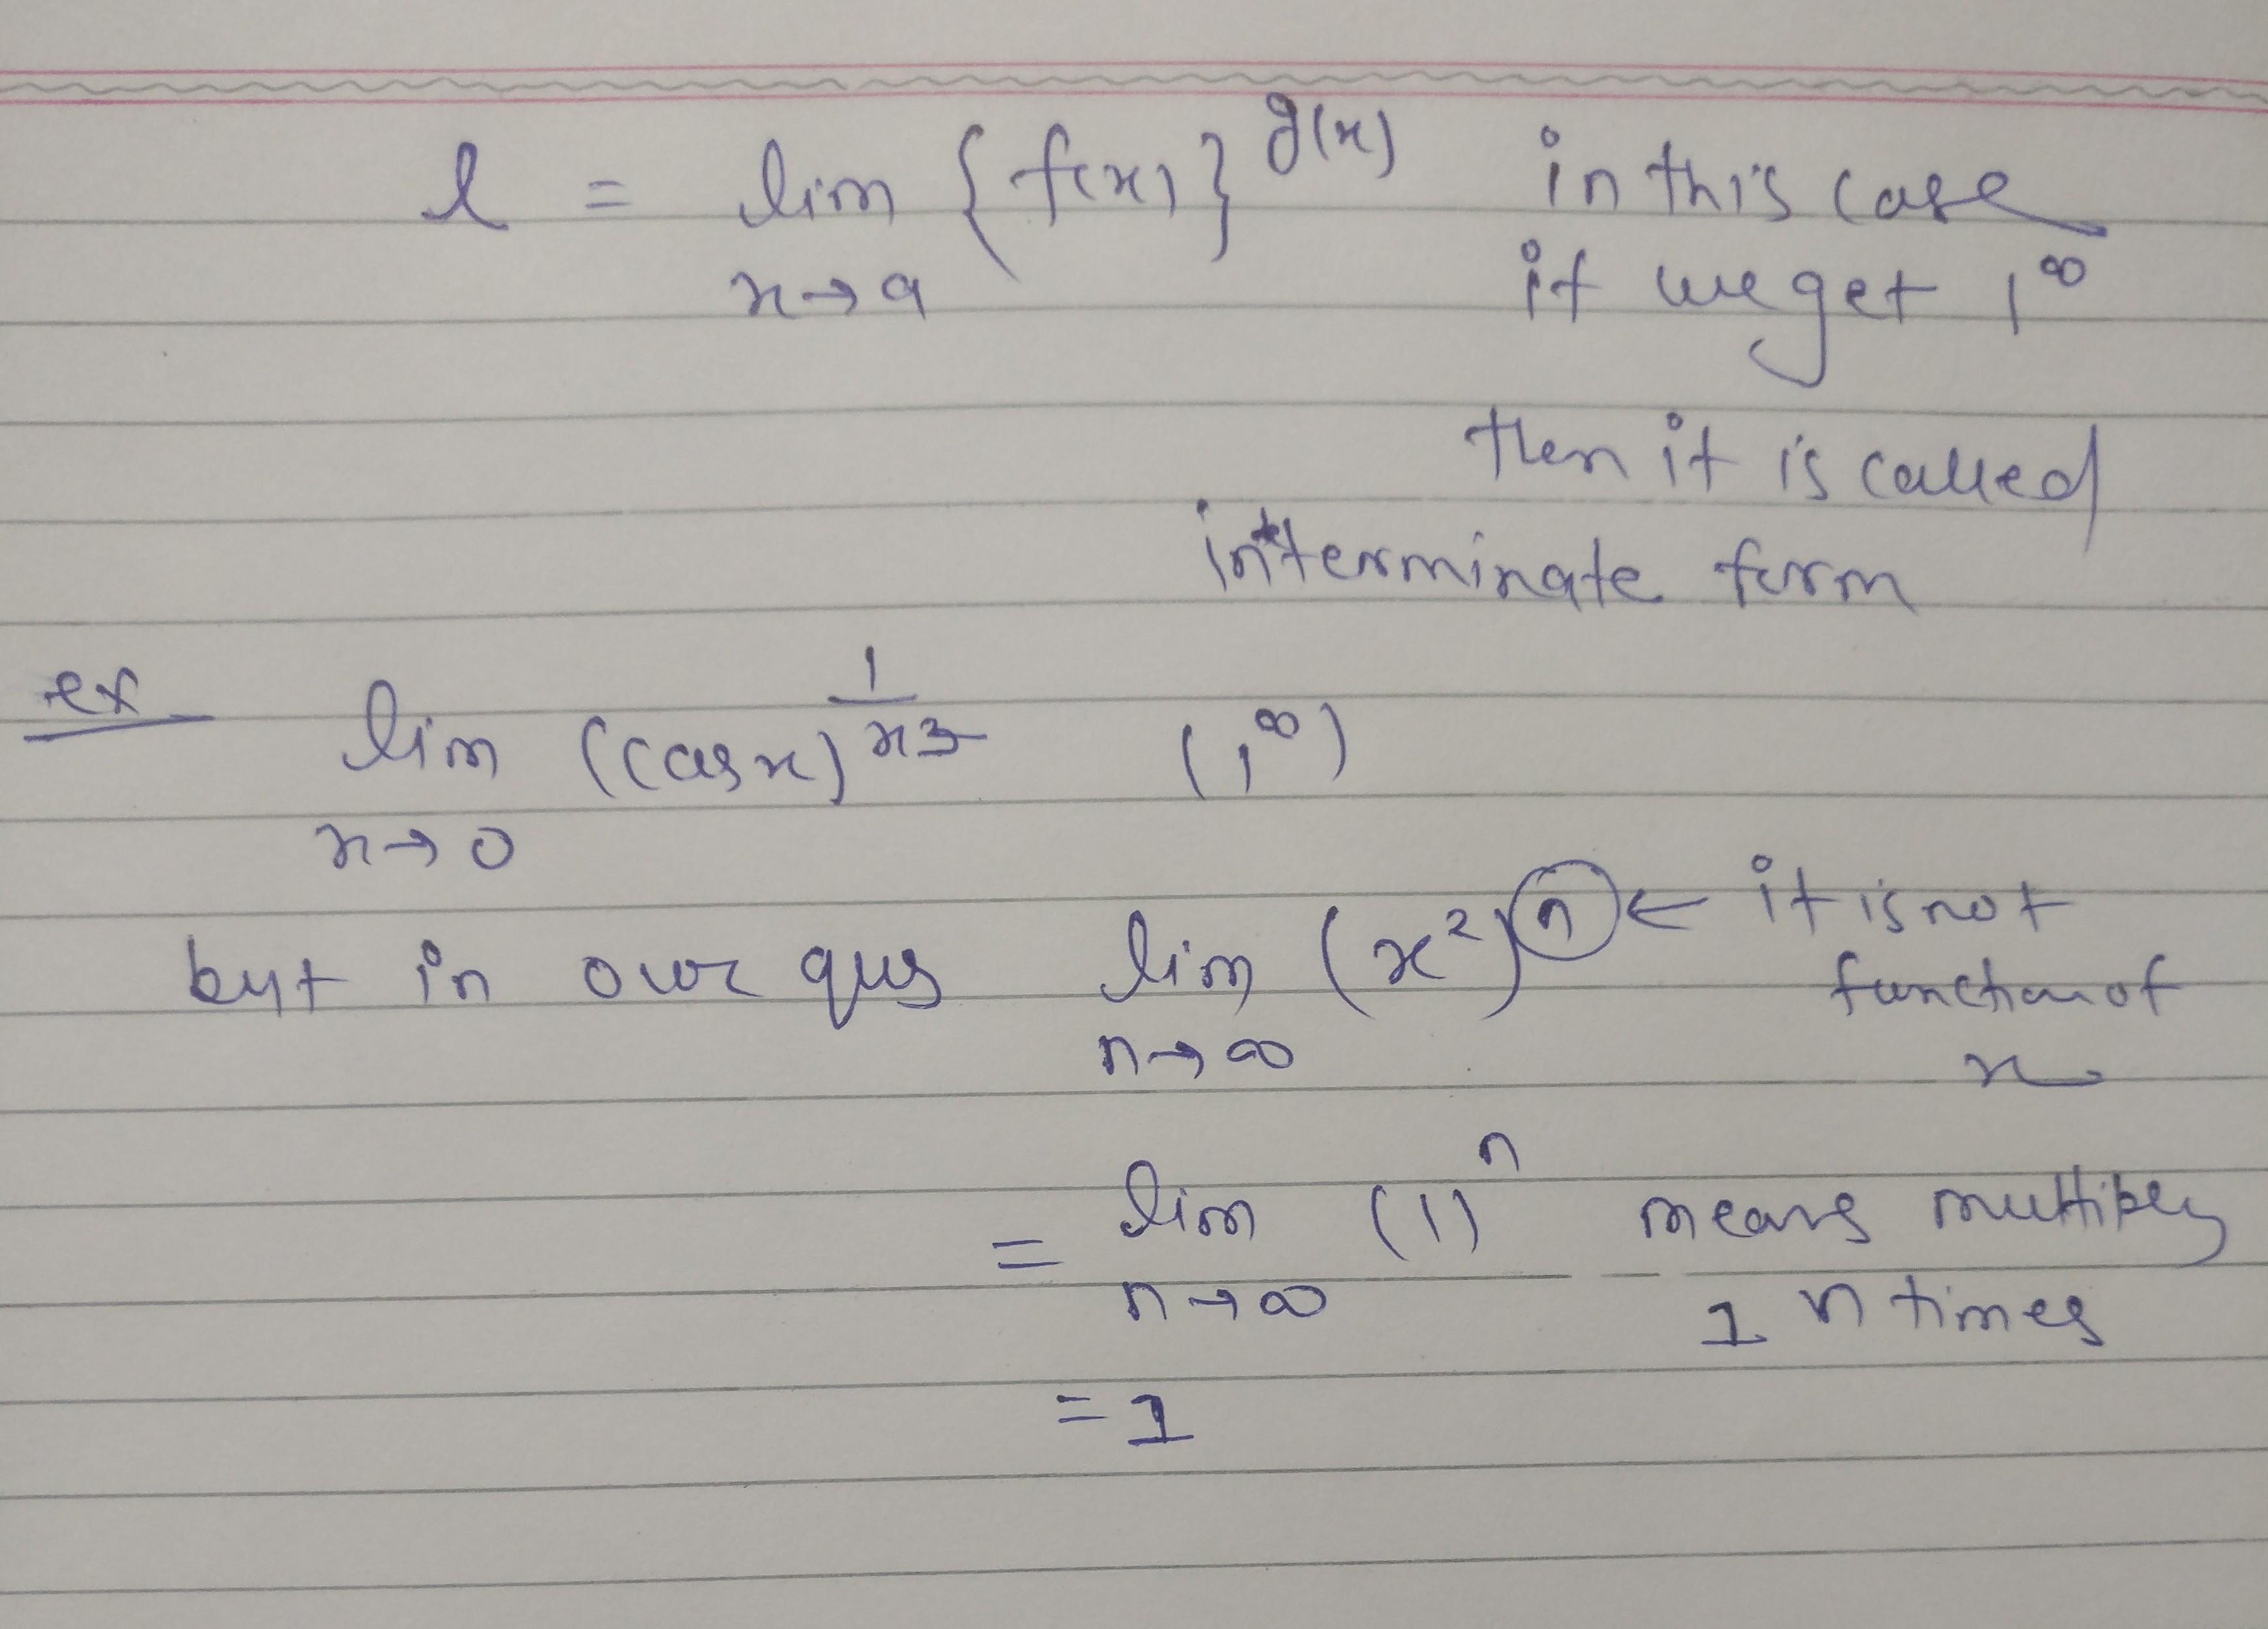 l = lim {f(x)}^g(x) in this case
x→a if we get 1^∞
then it is called
interminate form
ex lim (cosx)^1/x² (1^∞)
x→0
but in our qus lim (x²)^n ← it is not
n→∞ function of
x
= lim (1)^n means multiply
n→∞ 1 n times
= 1